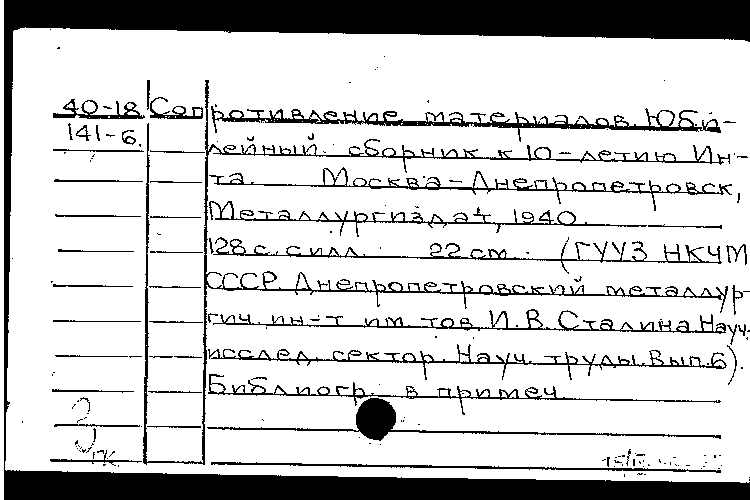 40-18 Сопротивление материалов. Юби-
141-6. лейный сборник к 10-летию Ин-
та. Москва-Днепропетровск,
Металлургиздат, 1940.
128 с. с илл. 22 см. (ГУУЗ НКЧМ
СССР Днепропетровский металлур-
гич. ин-т им. тов. И. В. Сталина. Науч.
исслед. сектор. Науч. труды. Вып. 6).
Библиогр. в примеч.
3
пк